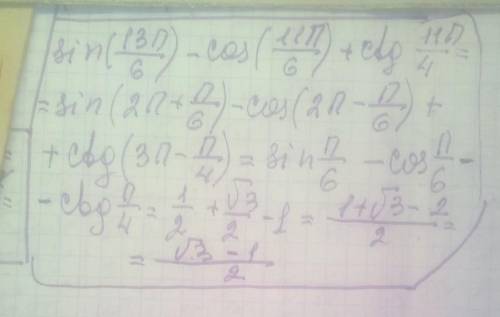 sin(13π/6) - cos(11π/6) + ctg 11π/4 =
= sin(2π + π/6) - cos(2π - π/6) +
+ ctg(3π - π/4) = sin π/6 - cos π/6 -
- ctg π/4 = 1/2 + √3/2 - 1 = (1 + √3 - 2)/2 =
= (√3 - 1)/2